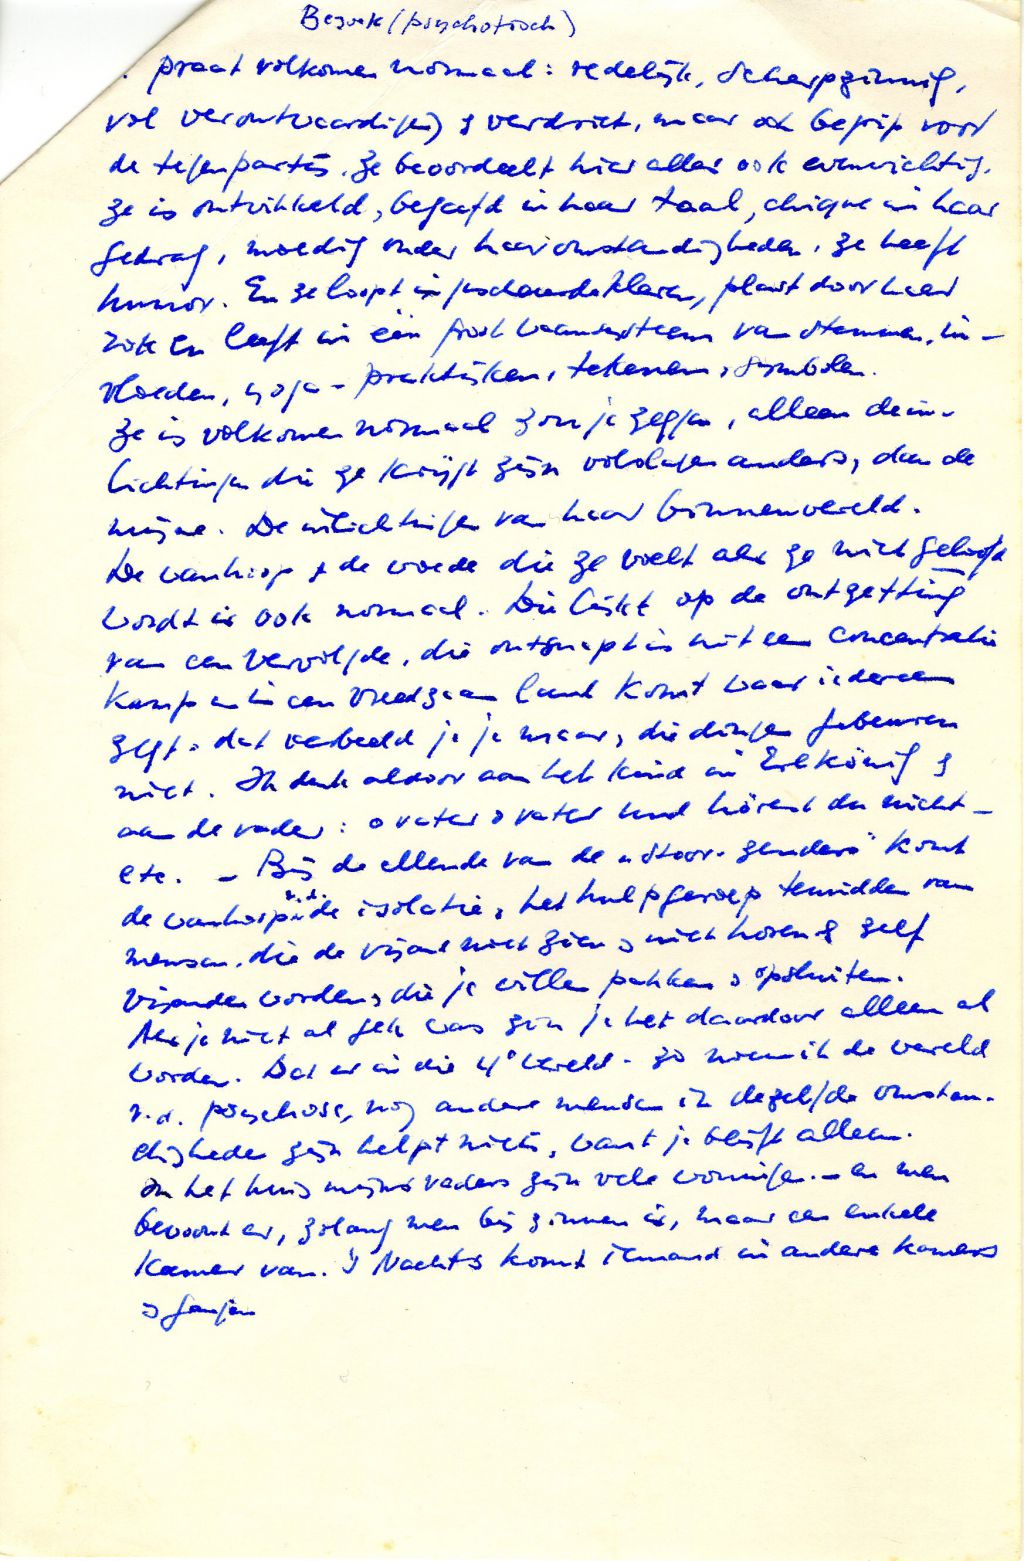 Bezoek (psychotisch)
. praat volkomen normaal: redelijk, scherpzinnig,
vol verontwaardiging & verdriet, maar ook begrip voor
de tegenpartij. Ze beoordeelt hier alles ook evenwichtig.
Ze is ontwikkeld, begaafd in haar taal, chique in haar
gedrag, moedig onder haar omstandigheden. Ze heeft
humor. En ze loopt in gescheurde kleren, plast door haar
rok en leeft in één groot waansysteem van stemmen, in-
vloeden, yoga-praktijken, tekenen, symbolen.
Ze is volkomen normaal zou je zeggen, alleen de in-
lichtingen die ze krijgt zijn volslagen anders, dan de
mijne. De inlichtingen van haar binnenwereld.
De wanhoop & de woede die ze voelt als ze niet geloofd
wordt is ook normaal. Die lijkt op de ontzetting
van een vervolgde, die ontsnapt is uit een concentratie
kamp en in een vreedzaam land komt waar iedereen
zegt: dat verbeeld je je maar, die dingen gebeuren
niet. Ik denk aldoor aan het kind in Erlkönig &
aan de vader: o vater o vater und hörest du nicht –
etc. – Bij de ellende van de "stoor-zenders" komt
de wanhoop v.d. isolatie, het hulpgeroep temidden van
mensen, die de vijand niet zien & niet horen & zelf
vijanden worden, die je willen pakken & opsluiten.
Als je niet al gek was zou je het daardoor alleen al
worden. Dat er in die 4e wereld - zo noem ik de wereld
v.d. psychose, nog andere mensen in dezelfde omstan-
digheden zijn helpt niets, want je blijft alleen.
In het huis mijns vaders zijn vele woningen. – en men
bewoont er, zolang men bij zinnen is, maar een enkele
kamer van. 's Nachts komt iemand in andere kamers
& gangen